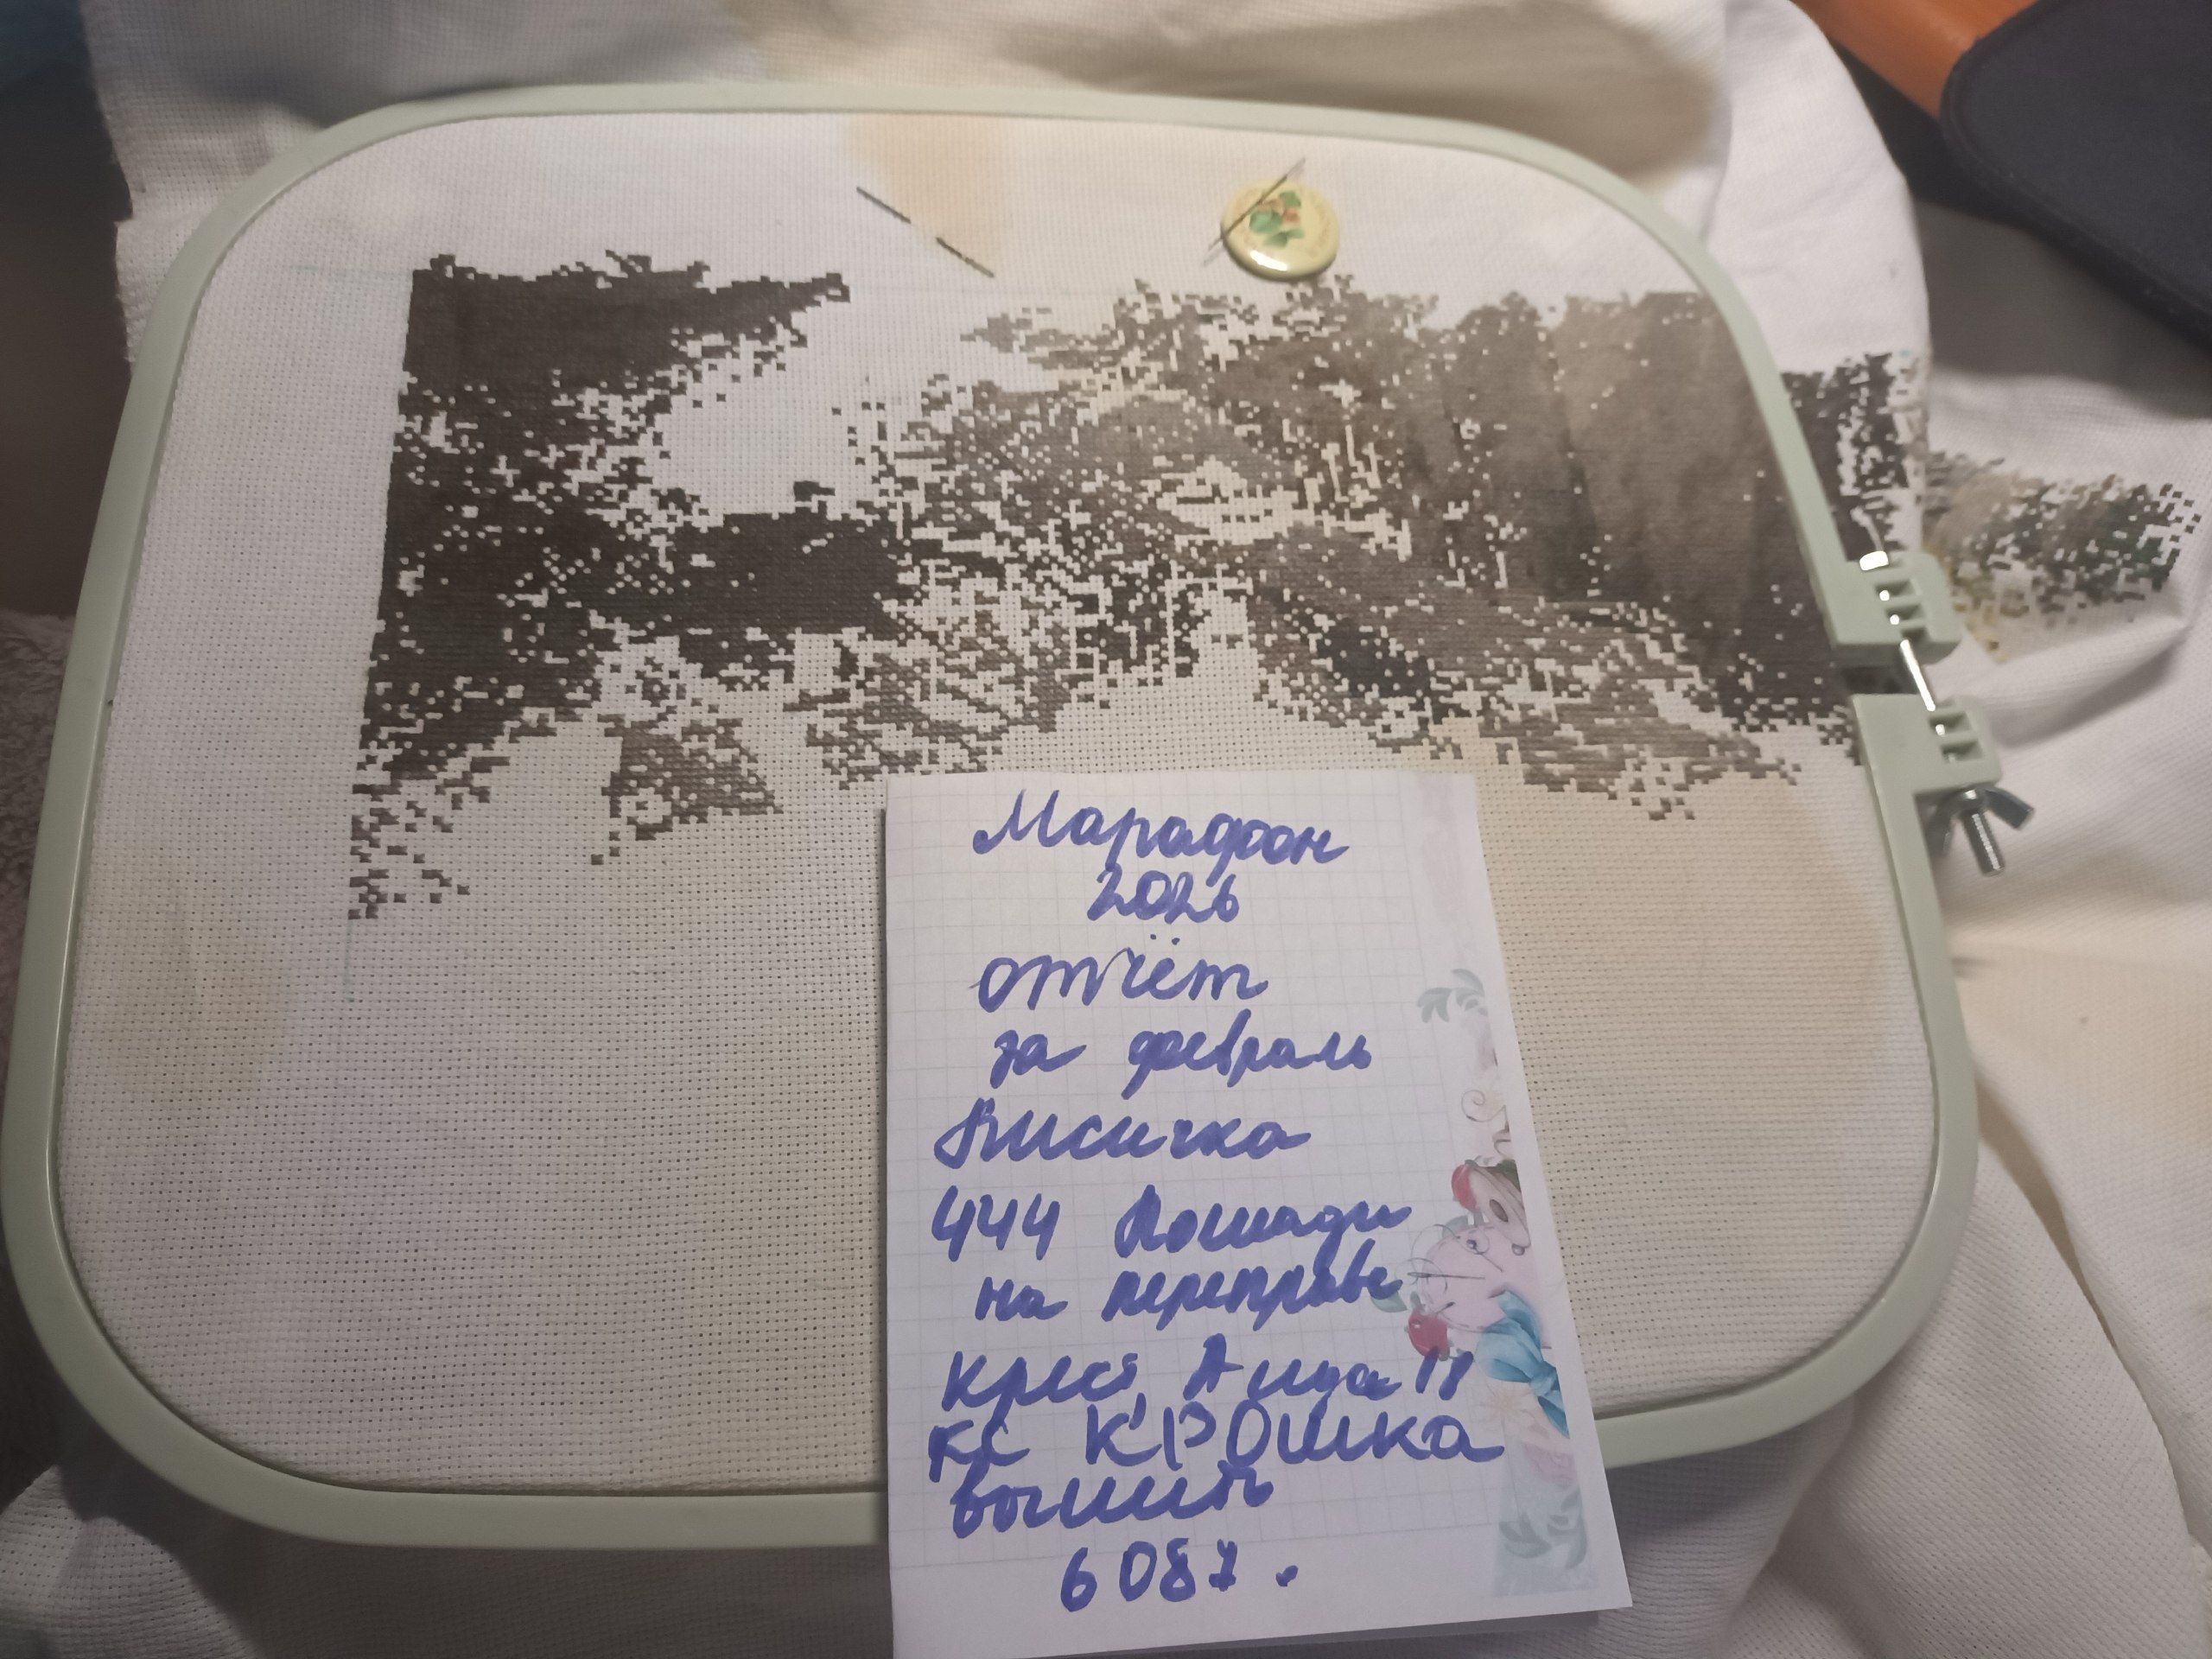 Марафон
2026
отчёт
за февраль
Лисичка
444 Лошади
на переправе
крест, Аида 18
КС КРОШКА
вышить
6087.